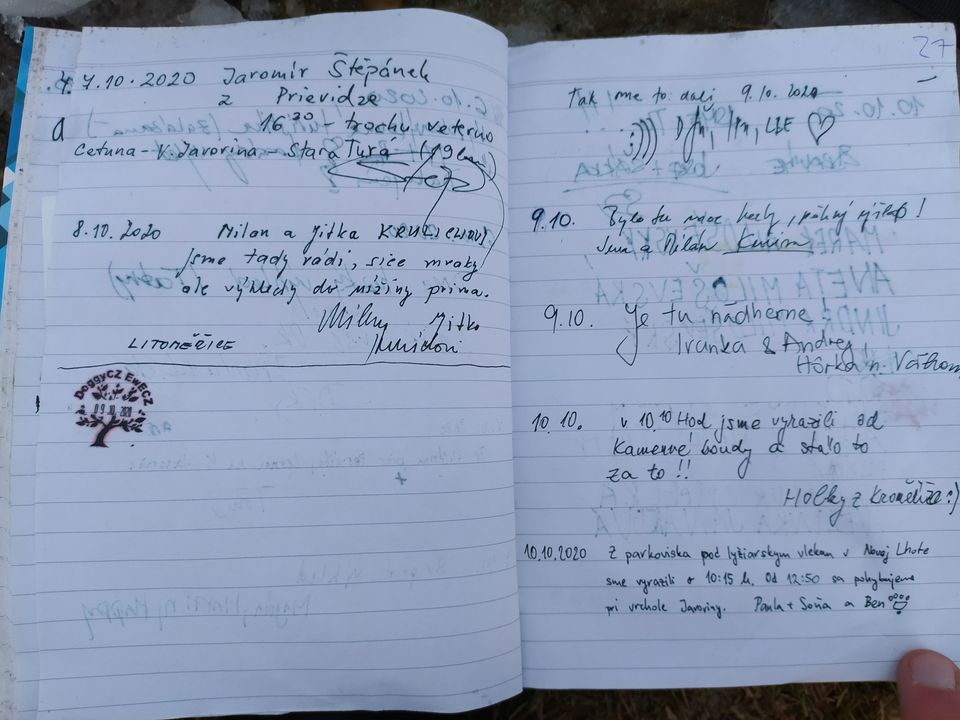 7.10.2020 Jaromír Štěpánek
z Prievidze
a 16³⁰ - trochu veterno
Cetuna - V. Javorina - Stará Turá (19km)
8.10.2020 Milan a Jitka
jsme tady rádi, sice mraky
ale výhledy do nížiny prima.
Milan Jitka
LITOMĚŘICE
DoggyCZ EwECZ
09.10.2020
27
Tak sme to dali 9.10.2020
:)))) ♡
9.10. Bylo tu moc hezky,
a Milan
9.10. Je tu nádherne!
Ivanka & Andrej,
Hôrka n. Váhom
10.10. v 10.10 Hod jsme vyrazili od
Kamenné boudy a stálo to
za to!!
Holky z Kroměříže :)
10.10.2020 Z parkoviska pod lyžiarskym vlekom v Novej Lhote
sme vyrazili o 10:15 h. Od 12:50 sa pohybujeme
pri vrchole Javoriny. Paula + Soňa a Ben